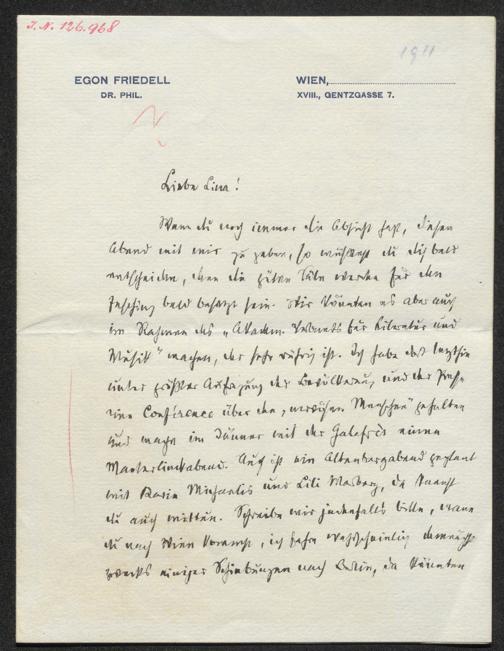 J.N. 126.968
1911
EGON FRIEDELL
DR. PHIL.
WIEN,
XVIII., GENTZGASSE 7.
Liebe Lina!
Wenn du noch immer die Absicht hast, diesen
Abend mit mir zu geben, so müsstest du dich bald
entscheiden, denn die guten Säle werden für den
Fasching bald besetzt sein. Wir könnten es aber auch
im Rahmen des „Akadem. Verbands für Literatur und
Musik" machen, der sehr rührig ist. Ich habe dort letzthin
unter größter Aufregung der Bevölkerung und der Presse
eine Conférence über den „nervösen Menschen" gehalten
und mache im Jänner mit der Galafrés einen
Maeterlinckabend. Auch ist ein Altenbergabend geplant
mit Karin Michaelis und Lili Marberg, da kannst
du auch mittun. Schreibe mir jedenfalls bitte, wann
du nach Wien kommst, ich fahre wahrscheinlich demnächst
zwecks einiger Schiebungen nach Berlin, da könnten